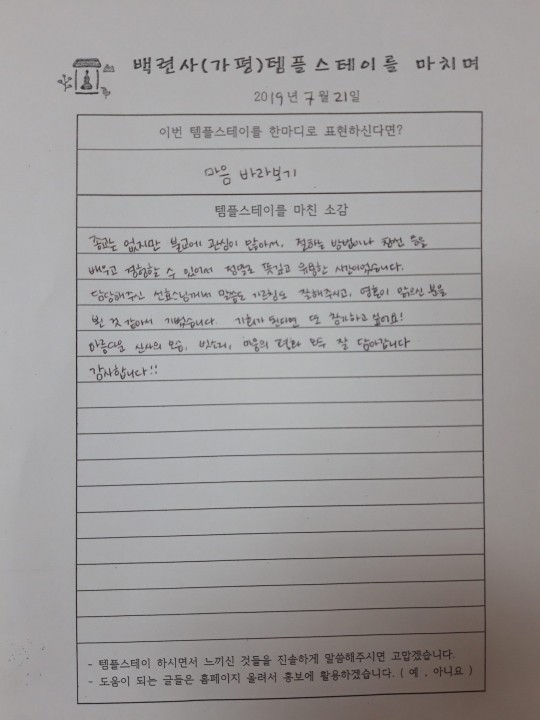 백련사(가평)템플스테이를 마치며
2019년 7월 21일
이번 템플스테이를 한마디로 표현하신다면?
마음 바라보기
템플스테이를 마친 소감
종교는 없지만 불교에 관심이 많아서, 절하는 방법이나 참선 등을
배우고 경험할 수 있어서 정말로 뜻깊고 유용한 시간이었습니다.
담당해주신 선효스님께서 말씀도 가르침도 잘해주시고, 영혼이 맑으신 분을
뵌 것 같아서 기뻤습니다. 기회가 된다면 또 참가하고 싶어요!
아름다운 산사의 모습, 빗소리, 마음의 평화 모두 잘 담아갑니다
감사합니다!!
- 템플스테이 하시면서 느끼신 것들을 진솔하게 말씀해주시면 고맙겠습니다.
- 도움이 되는 글들은 홈페이지 올려서 홍보에 활용하겠습니다. ( 예 , 아니요 )